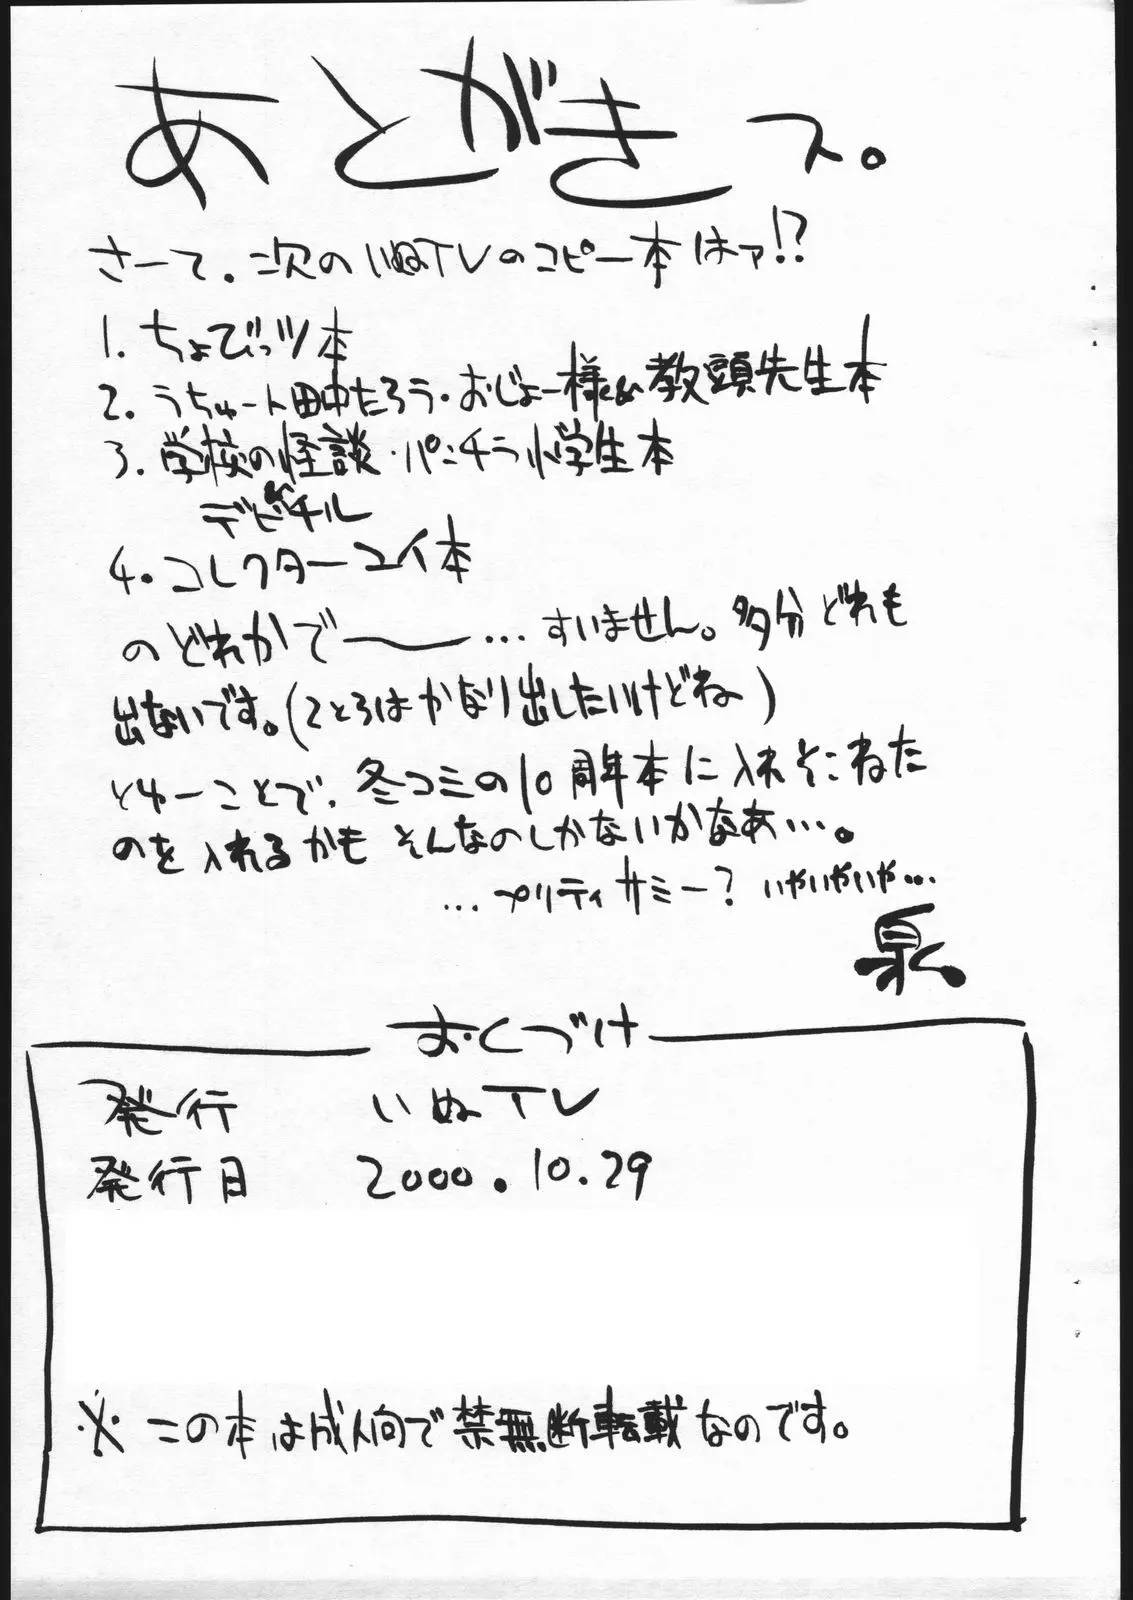 あとがきス。
さーて。次のいぬTVのコピー本はァ!?
1. ちょびっツ本
2. うちゅー人田中たろう・おじょー様&教頭先生本
3. 学校の怪談・パンチラ小学生本
デビチル
4. コレクターユイ本
のどれかで――…すいません。多分どれも
出ないです。(2と3はかなり出したいけどね)
とゆーことで、冬コミの10周年本に入れそこねた
のを入れるかもそんなのしかないかなあ…。
…プリティサミー?いやいやいや…
泉
おくづけ
発行 いぬTV
発行日 2000.10.29
※この本は成人向で禁無断転載なのです。